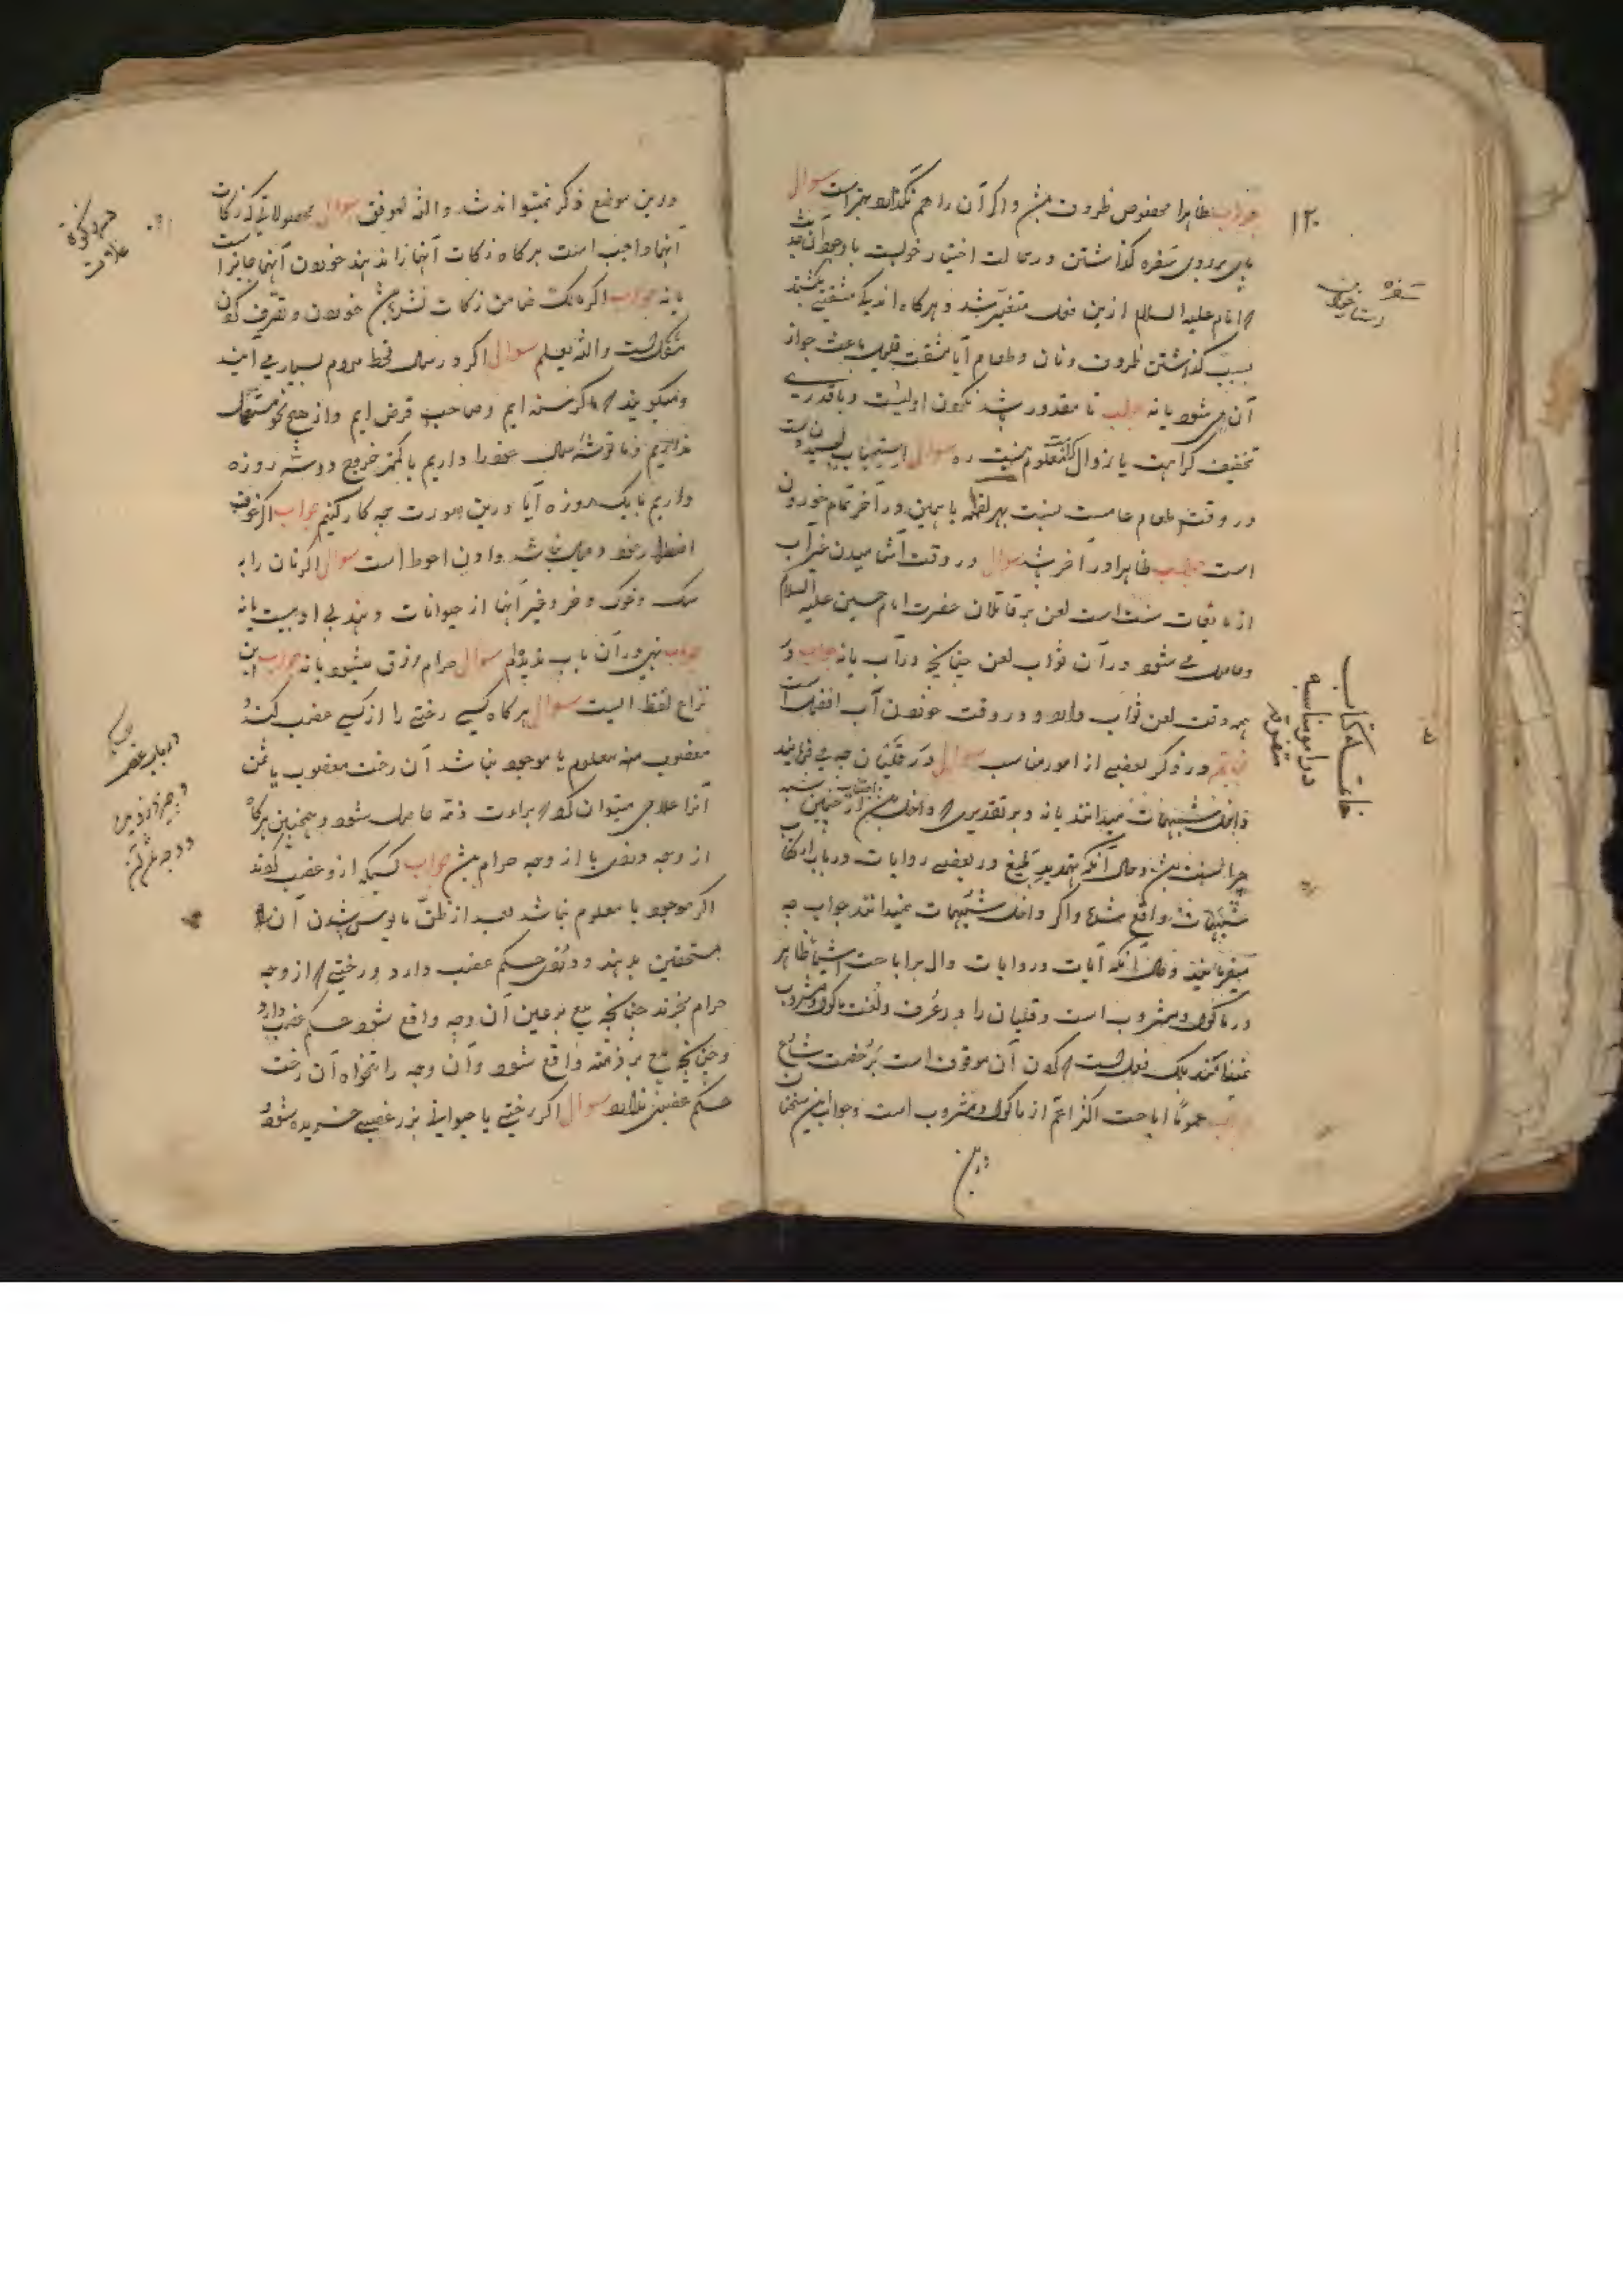 جواب ظاهرا مخصوص ظروف باشد و اگر آن را هم نگذارد بهتر است سوال
پای بر روی سفره گذاشتن در حالت اختیار خوبست با وجود آن حدیث
امام علیه السلام ازین فعل متغیر شد و هرگاه اندک مشقتی بکشند
بسبب گذاشتن ظروف و نان و طعام آیا مشقت قلیل باعث جواز
آن می شود یا نه جواب تا مقدور باشد نکردن اولیست و با قدری
تخفیف کراهت یا زوال معلوم نیست سوال استحباب
در وقت طعام عامست نسبت بهر لقمه یا همین در آخر تمام خوردن
است جواب ظاهرا در آخر باشد سوال در وقت آشامیدن غیر آب
از مایعات سنت است لعن بر قاتلان حضرت امام حسین علیه السلام
و حاصل می شود در آن ثواب لعن چنانچه در آب یا نه جواب در
همه وقت لعن ثواب دارد و در وقت خوردن آب افضل است
خاتمه در ذکر بعضی از امور مناسب سوال در قلیان چه می فرمایند
داخل مشبهات میدانند یا نه و بر تقدیری که داخل باشد اجتناب از چنین شبه
چرا نباشد و حال آنکه تهدید بلیغ در بعضی روایات در باب ارتکاب
شبهات واقع شده و اگر داخل مشبهات نمیدانند جواب چه
میفرمایند و حال آنکه آیات و روایات دال بر اباحت اشیا ظاهر
در ماکول و مشروب است و قلیان را در عرف و لغت ماکول و مشروب
نمینامند بلکه فعلیست که کردن آن موقوف است بر رخصت شارع
جواب عموما اباحت اکثر اعم از ماکول و مشروب است و جواب این سخنان
درین
۱۲۰
سفره
خاتمه کتاب
در امور مناسبه
متفرقه
درین موضع ذکر نمیتواند شد والله الموفق سوال محصولاتی که زکات
آنها واجب است هرگاه زکات آنها را ندهند خوردن آنها جایز است
یا نه جواب اگر مالک ضامن زکات نشده باشد خوردن و تصرف کردن
مشکل است والله یعلم سوال اگر در سال قحط مردم بسیار می آیند
و میگویند که ما گرسنه ایم و صاحب قرض ایم و از هیچ نحو مستقل
نداریم و ما قوت سال خود را داریم یا کمتر خرج دو سه روزه
داریم یا یک روزه آیا درین صورت چه کار کنیم جواب اگر خوف
اضطرار خود و عیال نباشد دادن احوط است سوال اگر نان را به
سگ و خوک و خر و غیر آنها از حیوانات دهند بی ادبیست یا نه
جواب نهی در آن باب ندیده ام سوال حرام رزق میشود یا نه جواب این
نزاع لفظیست سوال هرگاه کسی رختی را از کسی غصب کند و
مغصوب منه معلوم یا موجود نباشد آن رخت مغصوب یا ثمن
آنرا علاجی میتوان کرد که براءت ذمه حاصل شود و همچنین هرگاه
از وجه دزدی یا از وجه حرام باشد جواب کسیکه ازو غصب کرده اند
اگر موجود یا معلوم نباشد بعد از ظن مایوس شدن آن را
بمستحقین بدهند و دزدی حکم غصب دارد و رختی که از وجه
حرام بخرند چنانچه بیع بر عین آن وجه واقع شود حکم غصب دارد
و چنانچه بیع بر ذمه واقع شود و آن وجه را تنخواه آن رخت
حکم غصبی ندارد سوال اگر رختی یا حیوانی بزر غصبی خریده شود